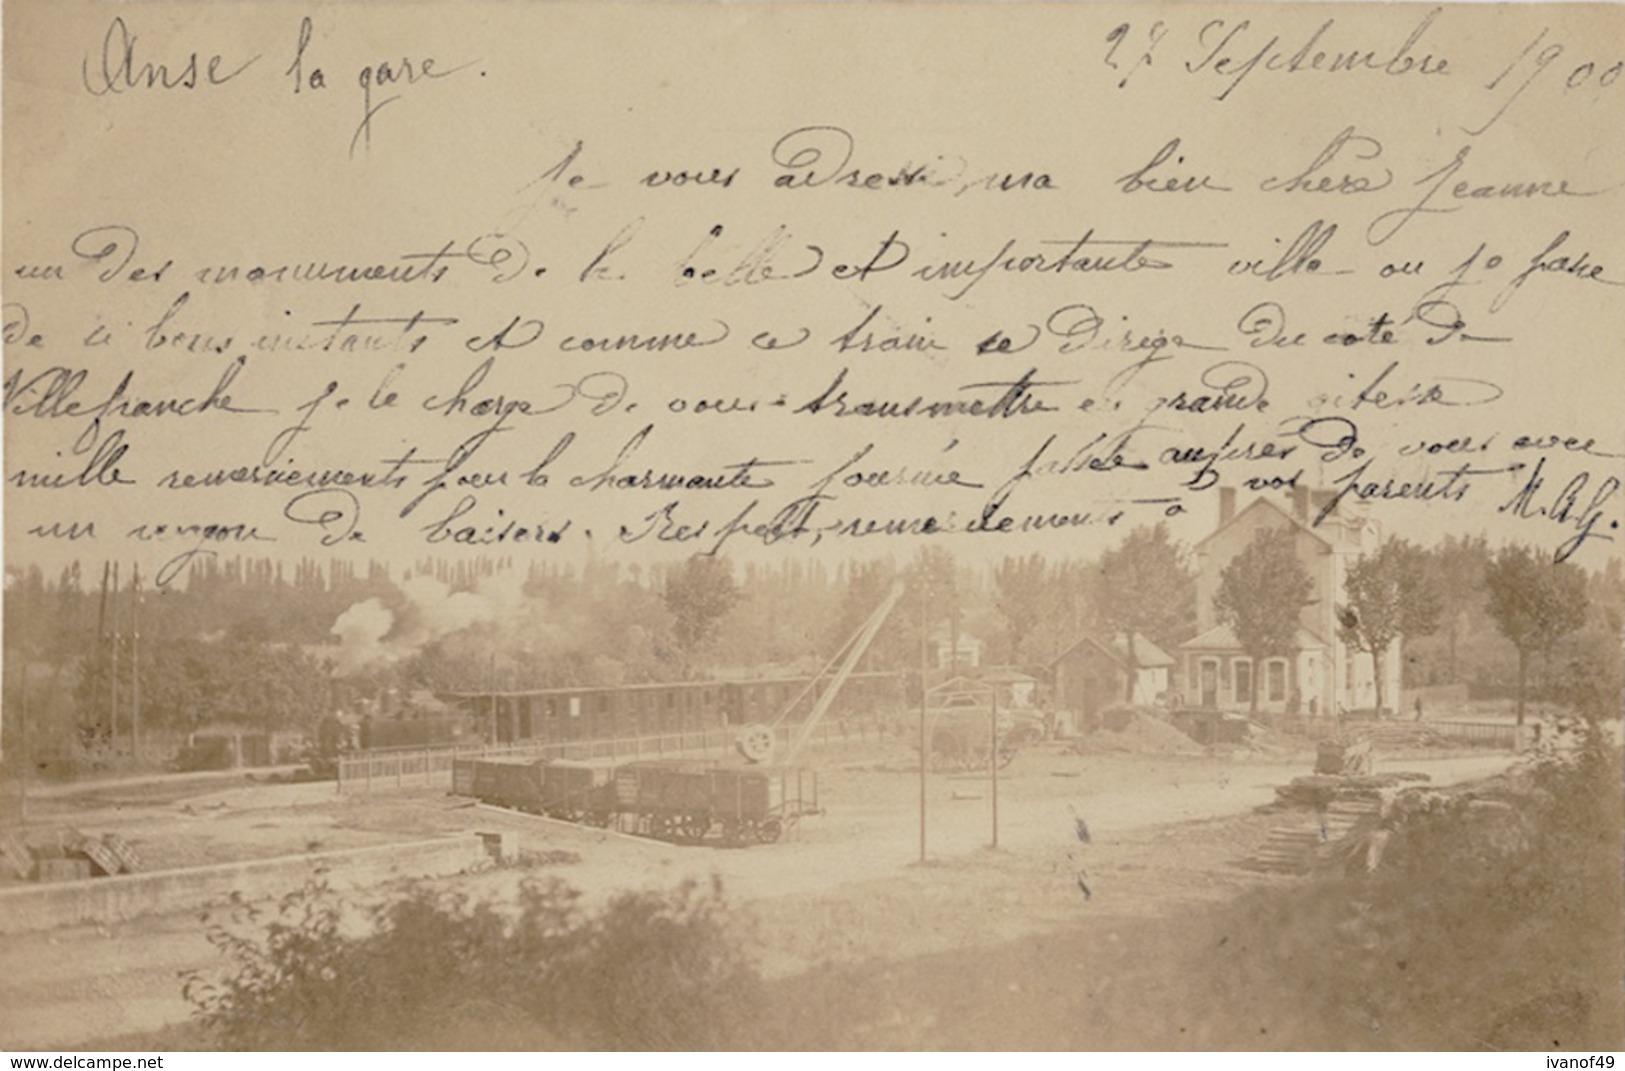 Anse la gare.
27 Septembre 1900
Je vous adresse, ma bien chère Jeanne
un des monuments de la belle et importante ville ou je passe
de si bons instants et comme ce train se dirige du coté de
Villefranche je le charge de vous transmettre en grande vitesse
mille remerciements pour la charmante journée passée auprès de vous avec
un wagon de baisers. Respect, remerciements à vos parents M.AG.
www.delcampe.net
ivanof49